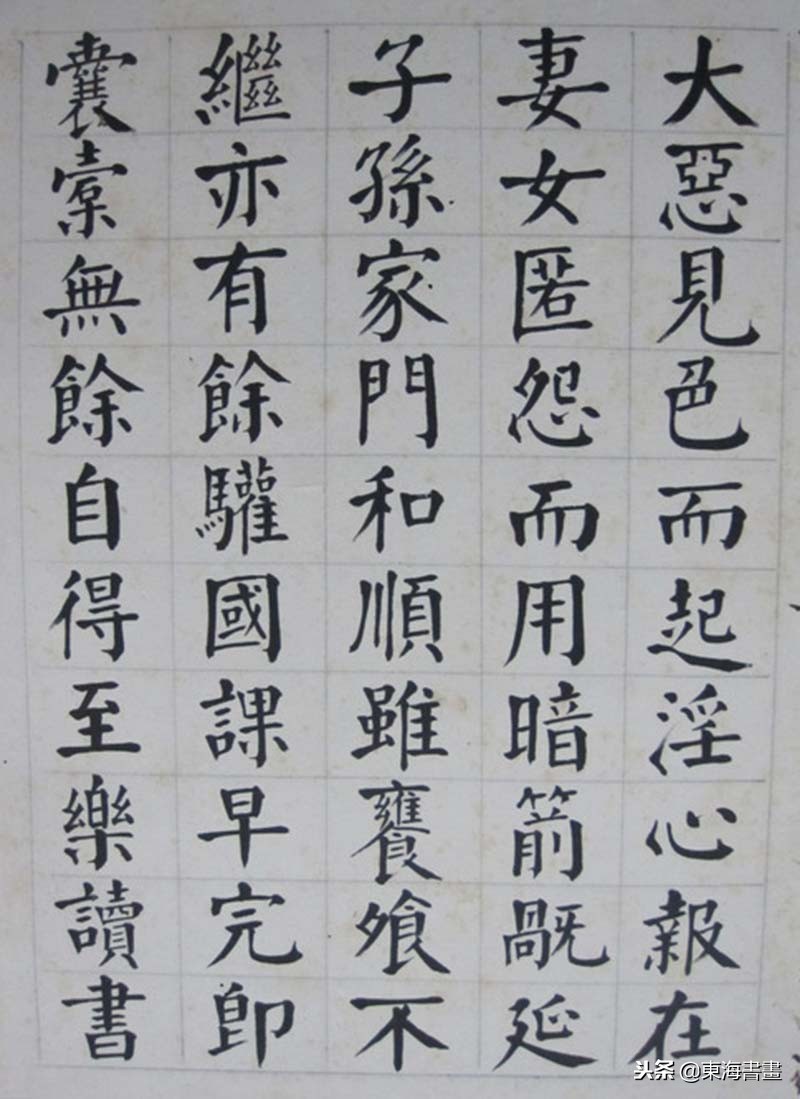 大惡見色而起淫心報在
妻女匿怨而用暗箭旤延
子孫家門和順雖饔飧不
繼亦有餘驩國課早完即
囊橐無餘自得至樂讀書
头条 @東海書畫